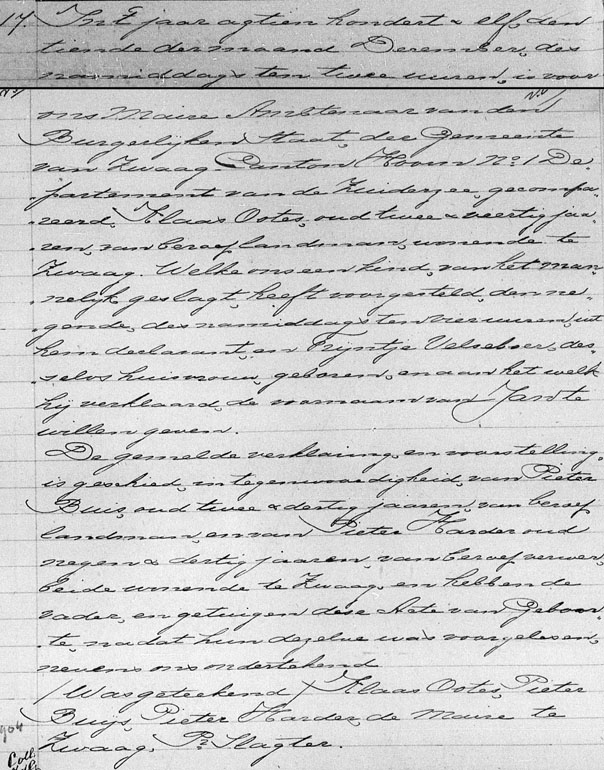 17. In 't jaar agtien hondert & elf, den
tiende der maand December, des
namiddags ten twee uuren, is voor
ons Maire Ambtenaar van den
Burgerlijken Staat, der Gemeente
van Zwaag Canton Hoorn No. 1 De-
partement van de Zuiderzee, gecompa-
reerd, Klaas Ootes, oud twee & veertig jaa-
ren, van beroep landman, wonende te
Zwaag. Welke ons een kind, van het man-
nelijk geslagt, heeft voorgesteld, den ne-
gende, des namiddags ten vier uuren, uit
hem declarant, en Trijntje Velseboer, des-
selvs huisvrouw, geboren, en aan het welk
hij verklaard, de voornaam van Jan te
willen geven.
De gemelde verklaring, en voorstelling
is geschied, in tegenwoordigheid, van Pieter
Buis, oud twee & dertig jaaren, van beroep
landman, en van Pieter Harder oud
negen & dertig jaaren, van beroep verwer,
beide wonende te Zwaag, en hebben de
vader, en getuigen dese Acte van Geboor-
te, na dat hun dezelve was voorgelesen,
nevens ons ondertekend
/Was geteekend/ Klaas Ootes, Pieter
Buijs, Pieter Harder, de Maire te
Zwaag, P. Slagter.
904
Coll.